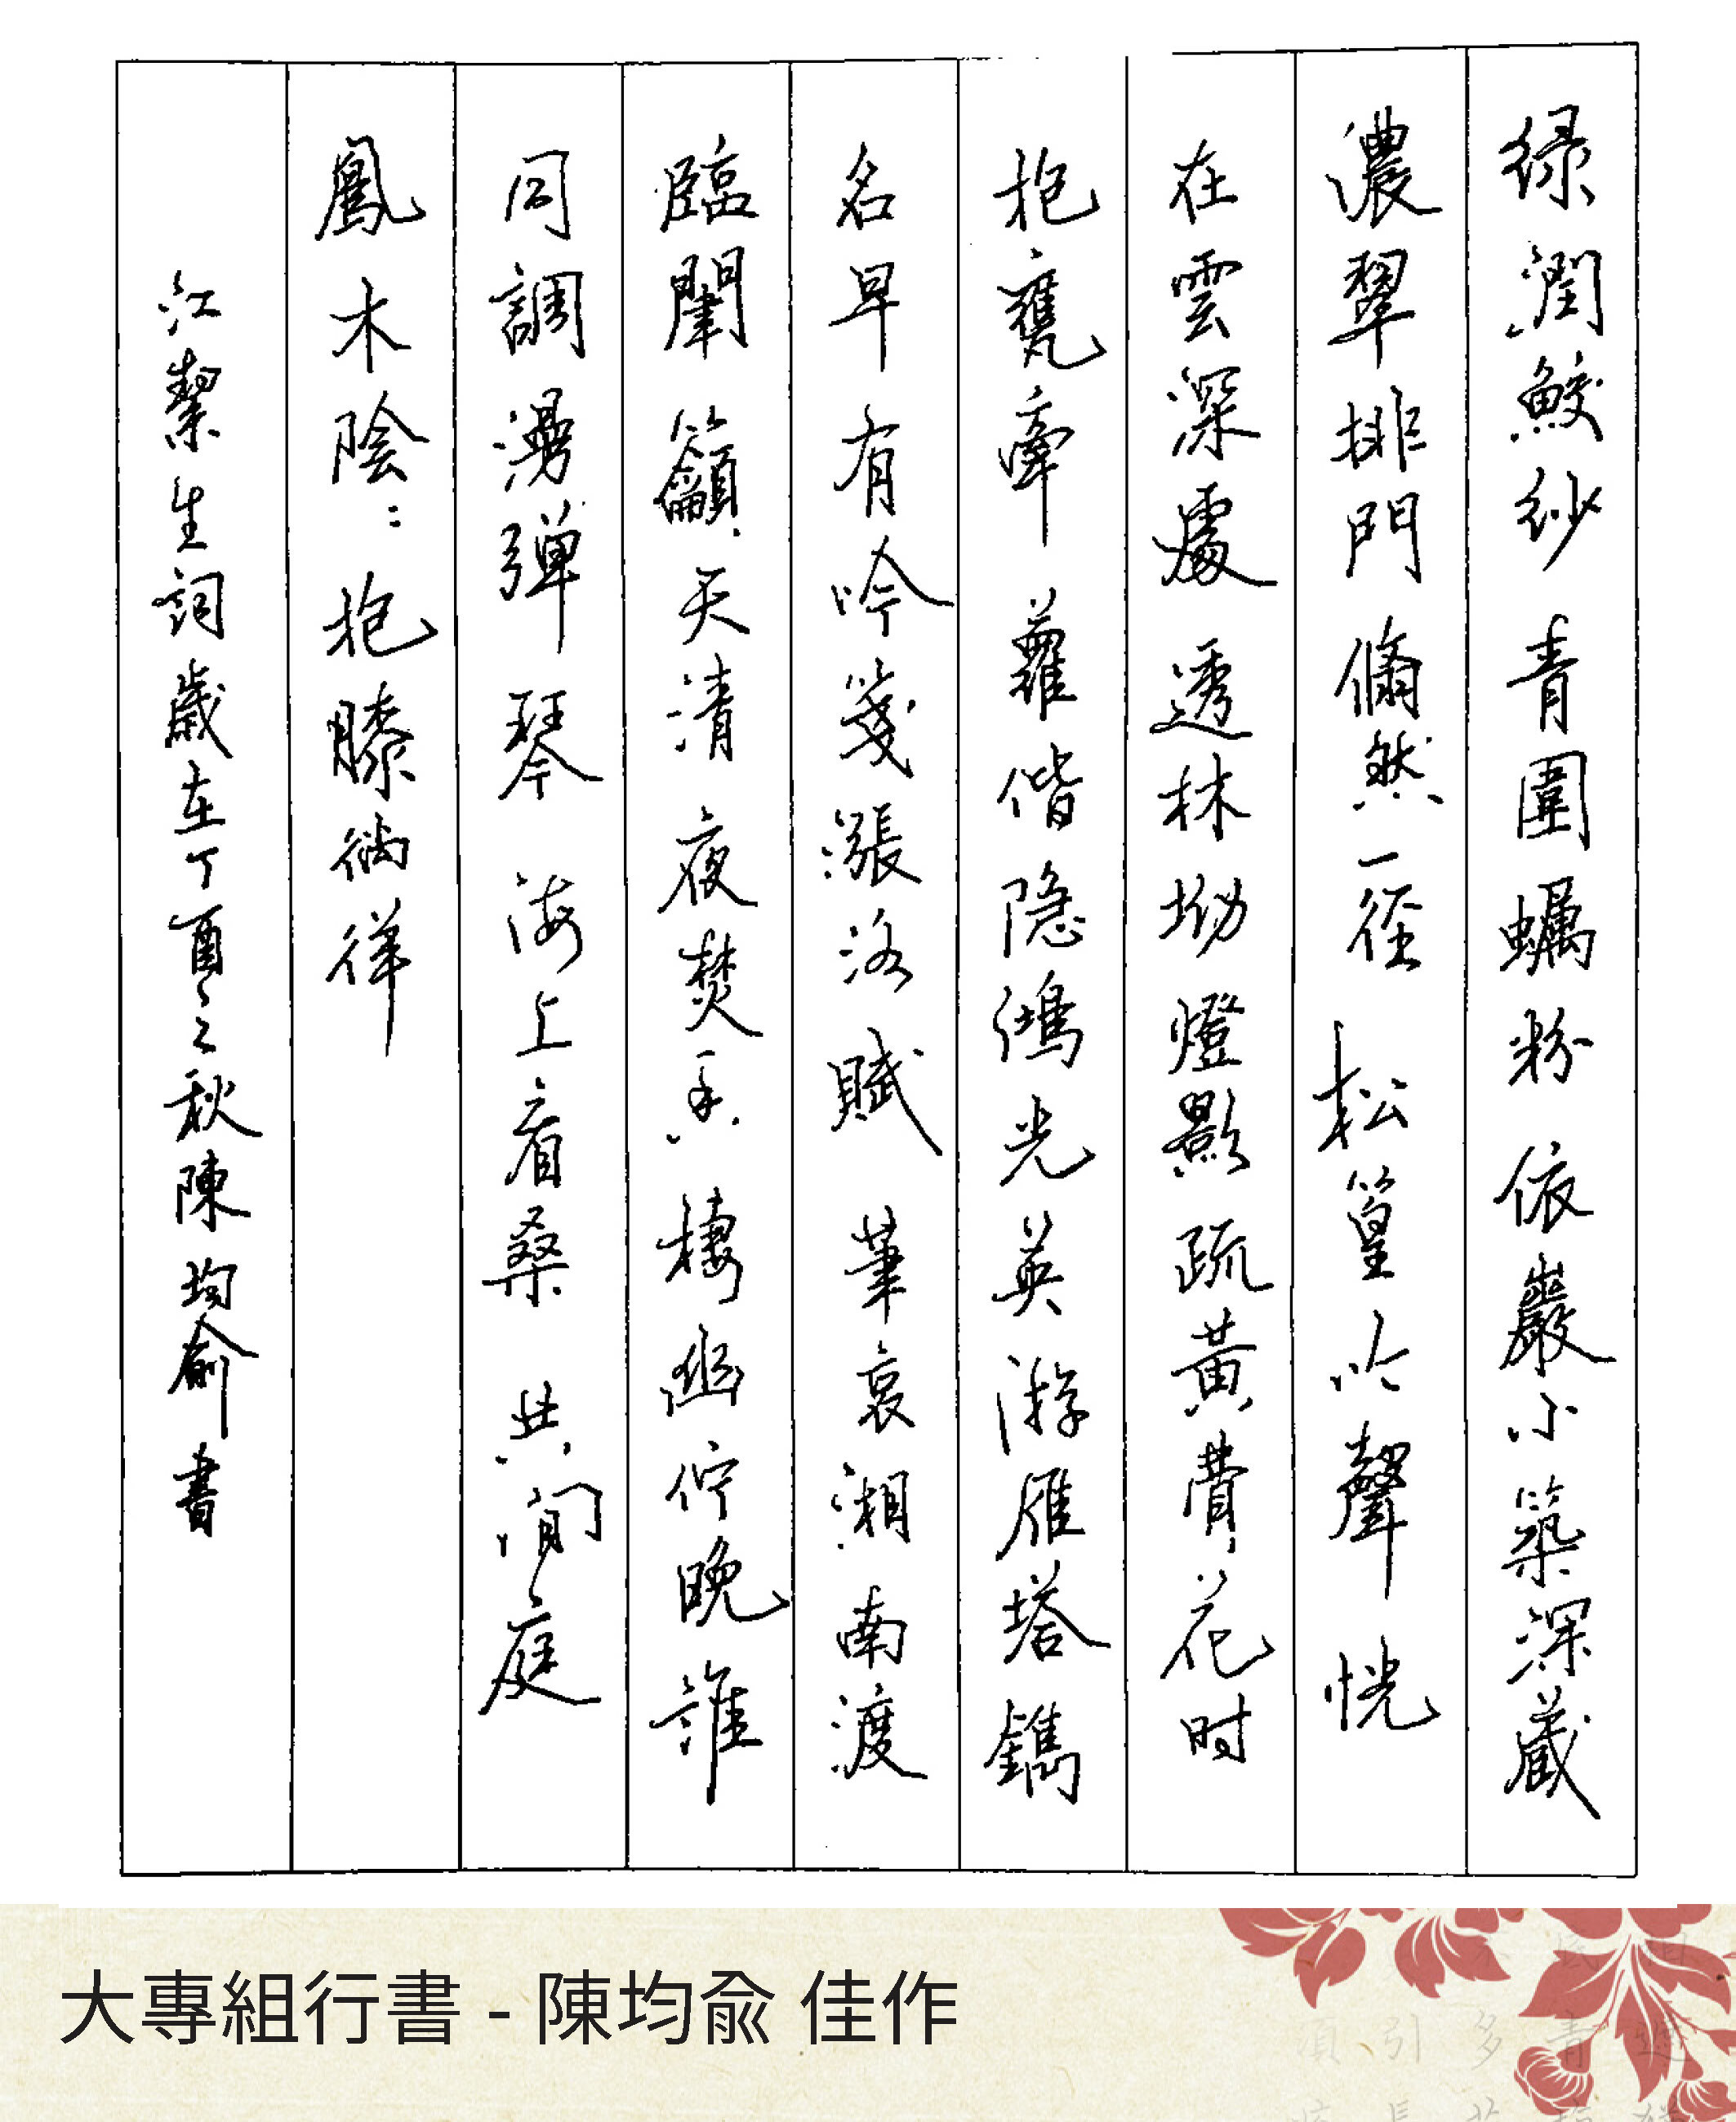 綠潤鮫紗青圍蠣粉依巖小築深藏
濃翠排門翛然一徑松篁吟聲恍
在雲深處透林坳燈影疏黃費花时
抱甕牽蘿偕隐鴻光英游雁塔鐫
名早有吟箋漲洛賦筆哀湘南渡
臨閶籲天清夜焚香棲幽佇晚誰
同調湯弹琴海上看桑共閒庭
鳳木陰:抱膝徜徉
江絜生詞歲在丁酉之秋陳均俞書
大專組行書 - 陳均兪 佳作